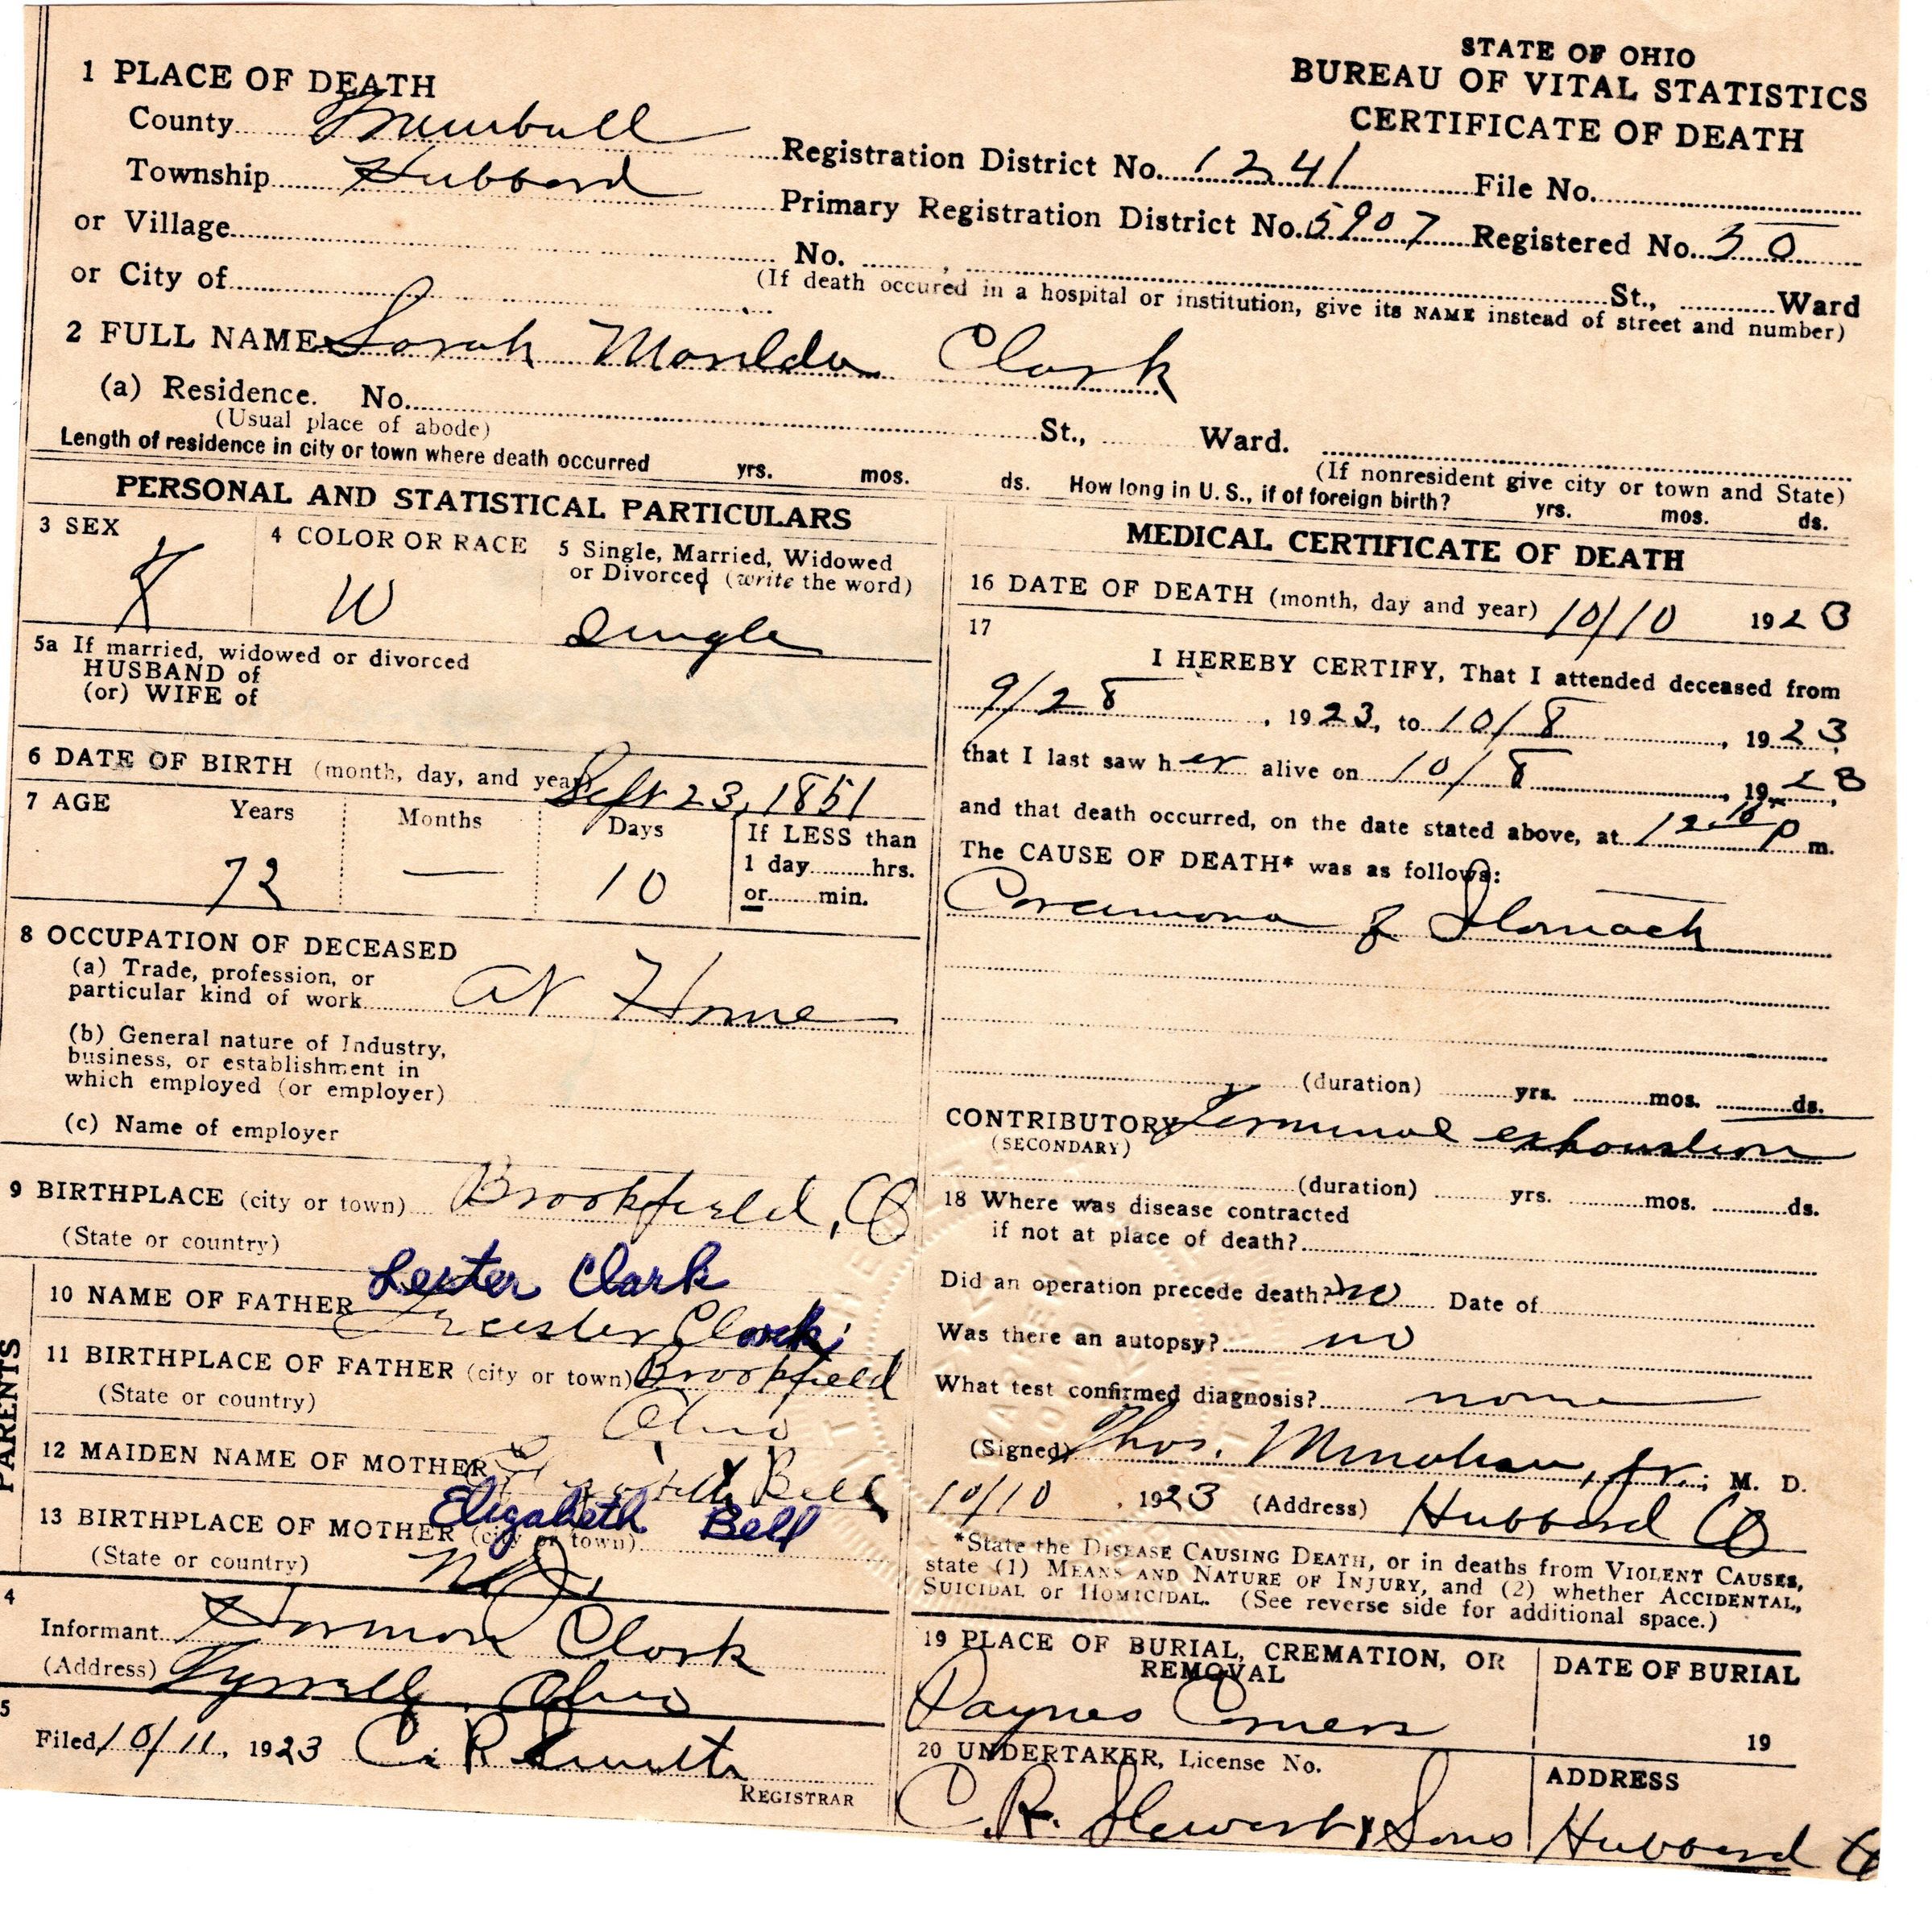 STATE OF OHIO
BUREAU OF VITAL STATISTICS
CERTIFICATE OF DEATH
1 PLACE OF DEATH
County Trumbull
Township Hubbard
or Village
or City of
Registration District No. 1241 File No.
Primary Registration District No. 5907 Registered No. 50
No. St., Ward
(If death occured in a hospital or institution, give its NAME instead of street and number)
2 FULL NAME Sarah Marilda Clark
(a) Residence. No. St., Ward.
(Usual place of abode) (If nonresident give city or town and State)
Length of residence in city or town where death occurred yrs. mos. ds. How long in U. S., if of foreign birth? yrs. mos. ds.
PERSONAL AND STATISTICAL PARTICULARS
3 SEX
4 COLOR OR RACE
W
5 Single, Married, Widowed
or Divorced (write the word)
Single
5a If married, widowed or divorced
HUSBAND of
(or) WIFE of
6 DATE OF BIRTH (month, day, and year) Sept 23, 1851
7 AGE Years Months Days
72 — 10
If LESS than
1 day hrs.
or min.
8 OCCUPATION OF DECEASED
(a) Trade, profession, or
particular kind of work At Home
(b) General nature of Industry,
business, or establishment in
which employed (or employer)
(c) Name of employer
9 BIRTHPLACE (city or town) Brookfield, O
(State or country)
PARENTS
Lester Clark
10 NAME OF FATHER Clark
11 BIRTHPLACE OF FATHER (city or town) Brookfield
(State or country) Ohio
12 MAIDEN NAME OF MOTHER Bell
Elizabeth Bell
13 BIRTHPLACE OF MOTHER (city or town)
(State or country) N.J.
4
Informant Harmon Clark
(Address) Tyrrell, Ohio
5
Filed 10/11, 1923 C. R. Smith
REGISTRAR
MEDICAL CERTIFICATE OF DEATH
16 DATE OF DEATH (month, day and year) 10/10 1923
17
I HEREBY CERTIFY, That I attended deceased from
9/28, 1923, to 10/8, 1923
that I last saw her alive on 10/8, 1923,
and that death occurred, on the date stated above, at 12 10 P m.
The CAUSE OF DEATH* was as follows:
Carcinoma of Stomach
(duration) yrs. mos. ds.
CONTRIBUTORY Terminal exhaustion
(SECONDARY)
(duration) yrs. mos. ds.
18 Where was disease contracted
if not at place of death?
Did an operation precede death? no Date of
Was there an autopsy? no
What test confirmed diagnosis? none
(Signed) Thos. Jr., M. D.
10/10, 1923 (Address) Hubbard O
*State the DISEASE CAUSING DEATH, or in deaths from VIOLENT CAUSES,
state (1) MEANS AND NATURE OF INJURY, and (2) whether ACCIDENTAL,
SUICIDAL or HOMICIDAL. (See reverse side for additional space.)
19 PLACE OF BURIAL, CREMATION, OR
REMOVAL
Paynes Corners
DATE OF BURIAL
19
20 UNDERTAKER, License No.
C. R. Stewart & Sons
ADDRESS
Hubbard O